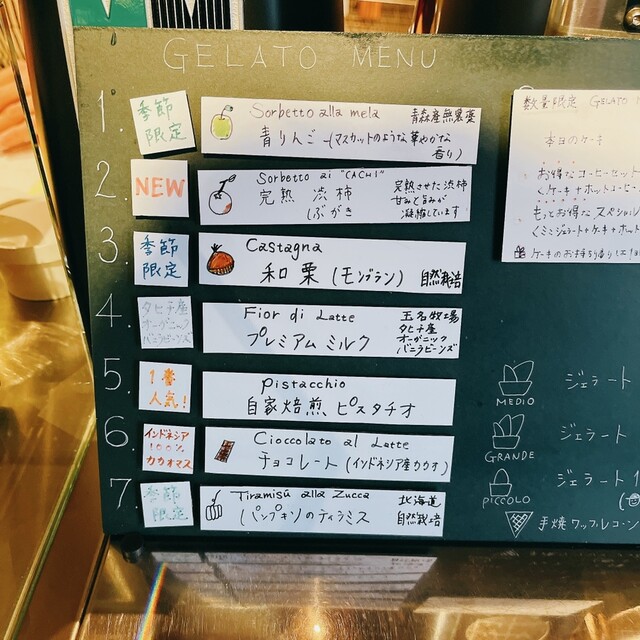 GELATO MENU
1.
季節
限定
Sorbetto alla mela
青森産無農薬
青りんご (マスカットのような華やかな
香り)
2.
NEW
Sorbetto ai "CACHI"
完熟 渋柿
しぶがき
完熟させた渋柿
甘みと旨みが
凝縮しています
3.
季節
限定
Castagna
和栗 (モンブラン) 自然栽培
4.
タヒチ産
オーガニック
バニラビーンズ
Fior di Latte
プレミアム ミルク
玉名牧場
タヒチ産
オーガニック
バニラビーンズ
5.
1番
人気!
Pistacchio
自家焙煎 ピスタチオ
6.
インドネシア
100%
カカオマス
Cioccolato al Latte
チョコレート (インドネシア産カカオ)
7.
季節
限定
Tiramisù alla Zucca
北海道
パンプキンのティラミス
自然栽培
数量限定 GELATO
本日のケーキ
お得なコーヒーセット
くケーキ+ホットコーヒー
もっとお得なスペシャル
くミニジェラート+ケーキ+ホット
ケーキのお持ち帰り
MEDIO
ジェラート
GRANDE
ジェラート
PICCOLO
ジェラート 1
手焼ワッフルコーン